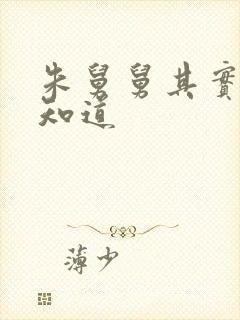 朱舅舅其實
知道
薄少